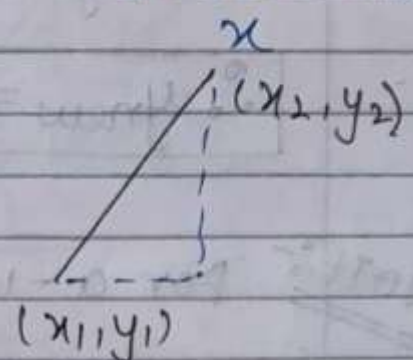 x
(x₂, y₂)
(x₁, y₁)